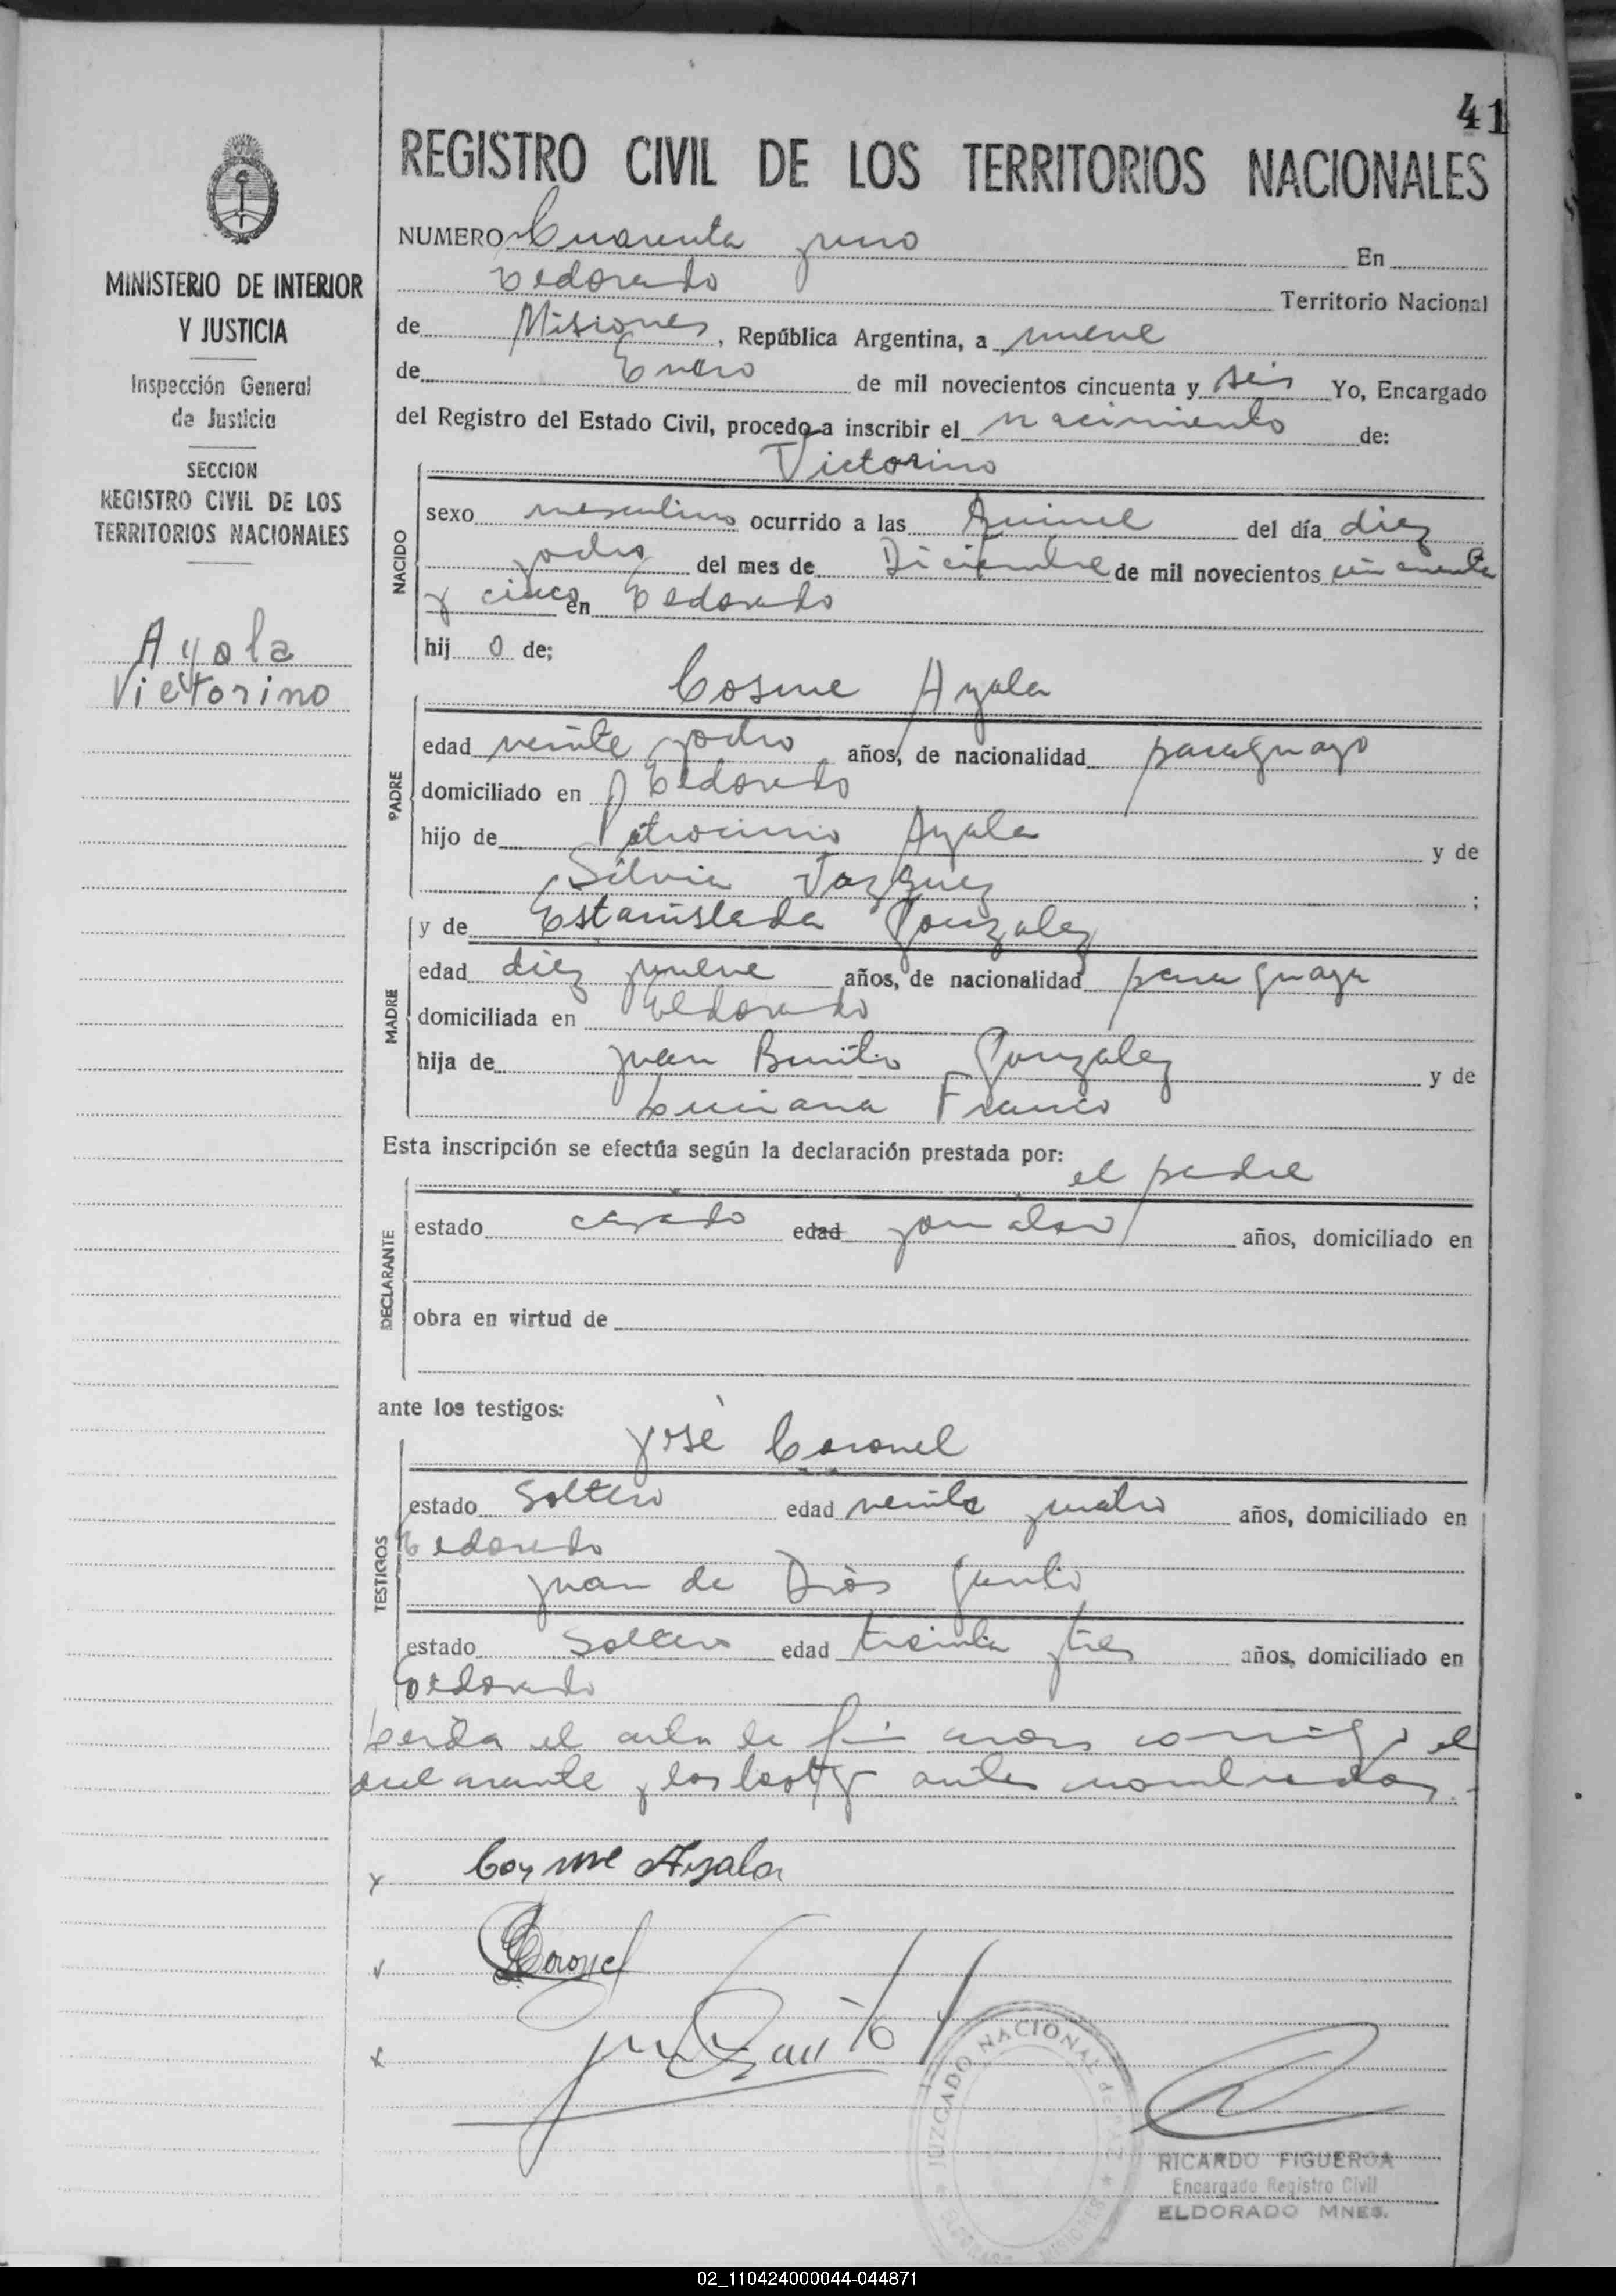 41
REGISTRO CIVIL DE LOS TERRITORIOS NACIONALES
NUMERO Cuarenta y uno En
Eldorado Territorio Nacional
de Misiones, República Argentina, a nueve
de Enero de mil novecientos cincuenta y seis Yo, Encargado
del Registro del Estado Civil, procedo a inscribir el nacimiento de:
MINISTERIO DE INTERIOR
Y JUSTICIA
Inspección General
de Justicia
SECCION
REGISTRO CIVIL DE LOS
TERRITORIOS NACIONALES
Ayala
Victorino
NACIDO
Victorino
sexo masculino ocurrido a las Quince del día diez
y ocho del mes de Diciembre de mil novecientos cincuenta
y cinco en Eldorado
hij o de;
PADRE
Cosme Ayala
edad veinte y ocho años, de nacionalidad paraguayo
domiciliado en Eldorado
hijo de Patrocinio Ayala y de
Silvia Vazquez ;
MADRE
y de Estanislada Gonzalez
edad diez y nueve años, de nacionalidad paraguaya
domiciliada en Eldorado
hija de Juan Benito Gonzalez y de
Luciana Franco
Esta inscripción se efectúa según la declaración prestada por:
el padre
DECLARANTE
estado casado edad jornalero años, domiciliado en
obra en virtud de
ante los testigos:
TESTIGOS
José Coronel
estado Soltero edad veinte y cuatro años, domiciliado en
Eldorado
Juan de Dios
estado Soltero edad treinta y tres años, domiciliado en
Eldorado
Leida el acta la conmigo el
declarante y los testigos antes nombrados.-
x Cosme Ayala
v Coronel
x
JUZGADO NACIONAL de PAZ
ELDORADO MISIONES
RICARDO FIGUEROA
Encargado Registro Civil
ELDORADO MNES.
02_110424000044-044871